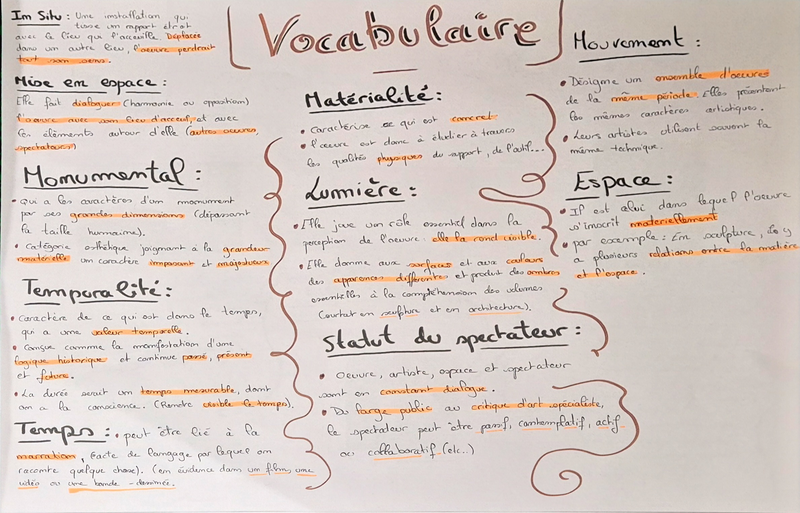 Vocabulaire
Im Situ : Une installation qui
tisse un rapport étroit
avec le lieu qui l'accueille. Déplacée
dans un autre lieu, l'oeuvre perdrait
tout son sens.
Mise en espace :
Elle fait dialoguer (harmonie ou opposition)
l'oeuvre avec son lieu d'accueil, et avec
les éléments autour d'elle (autres oeuvres,
spectateurs)
Monumental :
• qui a les caractères d'un monument
par ses grandes dimensions (dépassant
la taille humaine).
• Catégorie esthétique joignant à la grandeur
matérielle un caractère imposant et majestueux
Temporalité :
• Caractère de ce qui est dans le temps,
qui a une valeur temporelle.
• Conçue comme la manifestation d'une
logique historique et continue passé, présent
et future.
• La durée serait un temps mesurable, dont
on a la conscience. (Rendre visible le temps).
Temps : • peut être lié à la
narration, (acte de langage par lequel on
raconte quelque chose). (en évidence dans un film, une
vidéo ou une bande-dessinée.
Matérialité :
• Caractérise ce qui est concret
• l'oeuvre est donc à étudier à travers
les qualités physiques du support, de l'outil...
Lumière :
• Elle joue un rôle essentiel dans la
perception de l'oeuvre : elle la rend visible.
• Elle donne aux surfaces et aux couleurs
des apparences différentes et produit des ombres
essentielles à la compréhension des volumes
(surtout en sculpture et en architecture).
Statut du spectateur :
• Oeuvre, artiste, espace et spectateur
sont en constant dialogue.
• Du large public au critique d'art spécialisé,
le spectateur peut être passif, contemplatif, actif
ou collaboratif (etc..)
Mouvement :
• Désigne un ensemble d'oeuvres
de la même période. Elles présentent
les mêmes caractères artistiques.
• Leurs artistes utilisent souvent la
même technique.
Espace :
• Il est celui dans lequel l'oeuvre
s'inscrit matériellement
• par exemple : En sculpture, il y
a plusieurs relations entre la matière
et l'espace.